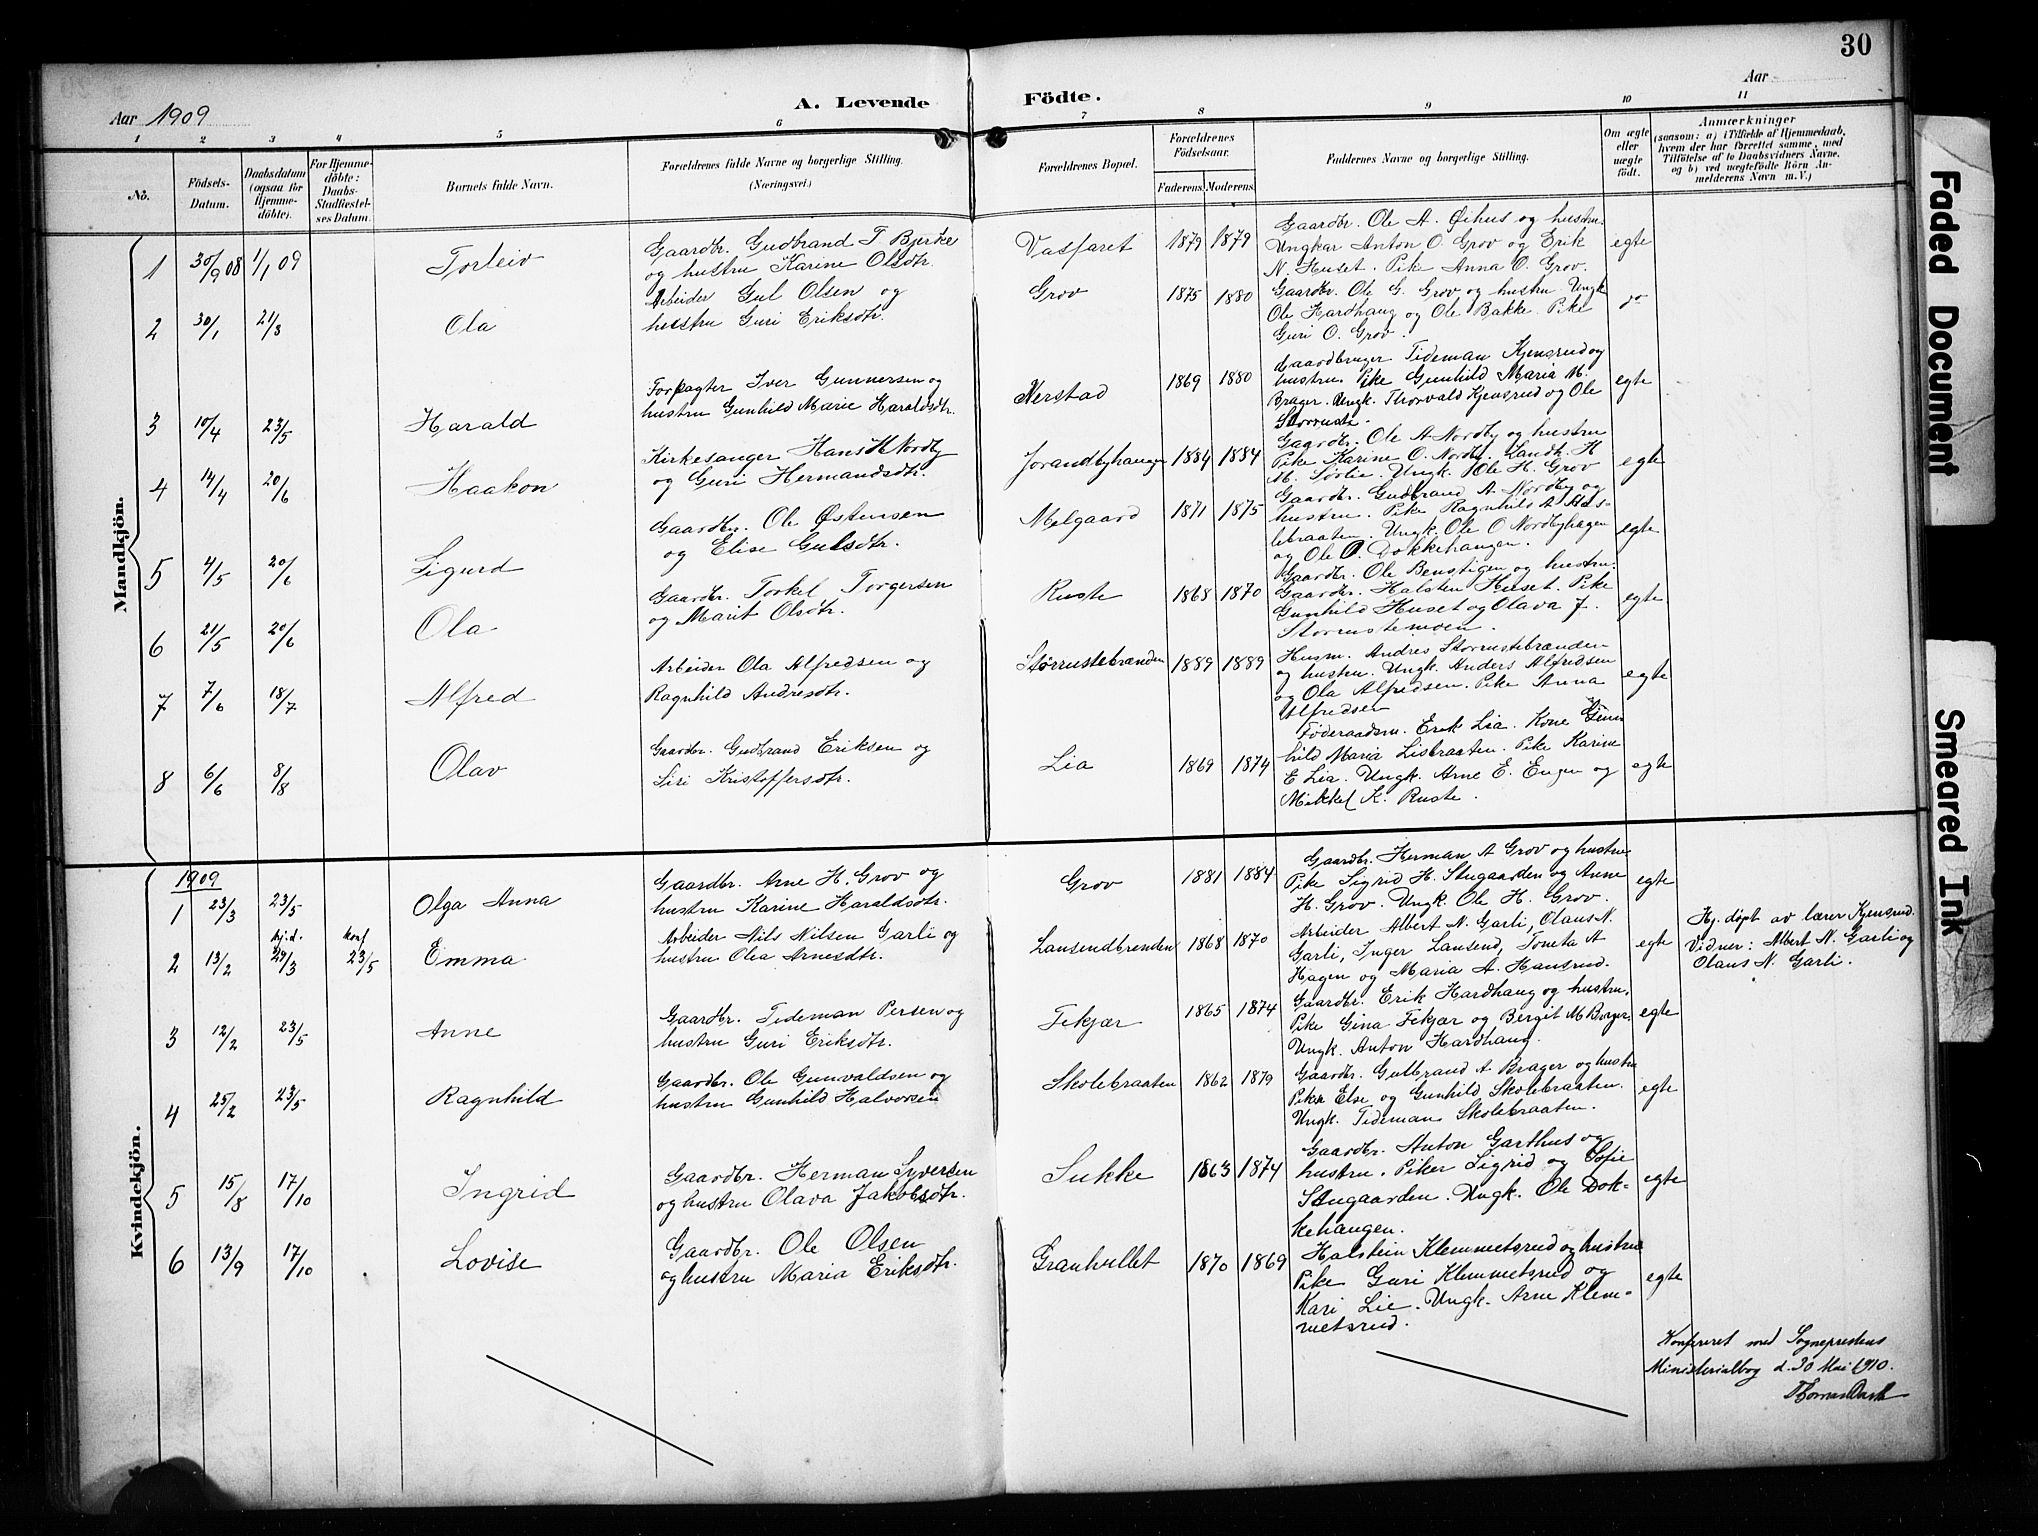 30
Aar 1909
A. Levende Födte.
Aar
1 2 3 4 5 6 7 8 9 10 11
No.
Födsels-
Datum.
Daabsdatum
(ogsaa for
Hjemme-
döbte).
For Hjemme-
döbte:
Daabs-
Stadfæstel-
ses Datum.
Barnets fulde Navn.
Forældrenes fulde Navne og borgerlige Stilling.
(Næringsvei.)
Forældrenes Bopæl.
Forældrenes
Födselsaar.
Faderens. Moderens.
Faddernes Navne og borgerlige Stilling.
Om ægte
eller
uægte
født.
Anmærkninger
(saasom: a) i Tilfælde af Hjemmedaab,
hvem der har forrettet samme, med
Tilföielse af to Daabsvidners Navne,
og b) ved uægtefödte Börn An-
melderens Navn m. V.)
Mandkjön.
1 30/9 08 1/1 09 Torleiv
Gaardbr. Gudbrand T Bjerke
og hustru Karine Olsdtr.
Vasfaret 1879 1879
Gaardbr. Ole A. Øihus og hustru.
Ungkar Anton O. Grov og Erik
N. Huset. Pike Anna O. Grov.
egte
2 30/1 21/3 Ola
Arbeider Gul Olsen og
hustru Guri Eriksdtr.
Grov 1875 1880
Gaardbr. Ole G. Grov og hustru Ungk
Ole Hardhaug og Ole Bakke. Pike
Guri O. Grov.
do
3 10/4 23/5 Harald
Forpagter Iver Gunnersen og
hustru Gunhild Marie Haraldsdtr.
Nerstad 1869 1880
Gaardbruger Tideman Kjensrud og
hustru. Pike Gunhild Maria M.
Brager. Ungk. Thorvald Kjensrud og Ole
Storruste.
egte
4 14/4 20/6 Haakon
Kirkesanger Hans H Nordby
og Guri Hermandsdtr.
Jorandbyhaugen 1884 1884
Gaardbr. Ole A Nordby og hustru
Pike Karine O. Nordby. Landh. H
M. Sørlie. Ungk. Ole H. Grov
egte
5 4/5 20/6 Sigurd
Gaardbr. Ole Østensen
og Elise Gulsdtr.
Melgaard 1871 1875
Gaardbr. Gudbrand A Nordby og
hustru. Pike Ragnhild A Has-
lebraaten. Ungk. Ole O Nordbyhagen
og Ole O. Dokkehaugen.
egte
6 21/5 20/6 Ola
Gaardbr. Torkel Torgersen
og Marit Olsdtr.
Ruste 1868 1870
Gaardbr. Ole Benstigen og hustru.
Gaardbr. Halsten Huset. Pike
Gunhild Huset og Olava J.
Storrustemoen.
egte
7 7/6 18/7 Alfred
Arbeider Ola Alfredsen og
Ragnhild Andresdtr.
Størrustebrænden 1889 1889
Husm. Andres Storrustebrænden
og hustru. Ungk. Anders Alfredsen
og Ola Alfredsen. Pike Anna
Alfredsen
egte
8 6/6 8/8 Olav
Gaardbr. Gudbrand Eriksen og
Siri Kristoffersdtr.
Lia 1869 1874
Föderaadsm. Erik Lia. Kone Gun-
hild Maria Lisbraaten. Pike Karine
E Lia. Ungk. Arne E. Engen og
Mikkel K. Ruste.
egte
Kvindekjön.
1909
1 23/3 23/5 Olga Anna
Gaardbr. Arne H. Grov og
hustru Karine Haraldsdtr.
Grov 1881 1884
Gaardbr. Herman A Grov og hustru
Pike Sigrid H. Stugaarden og Anne
H. Grov. Ungk. Ole H. Grov.
egte
2 13/2 hj.d. 24/3 konf 23/5 Emma
Arbeider Nils Nilsen Garli og
hustru Olia Arnesdtr.
Lansendbrenden 1868 1870
Arbeider Albert N. Garli, Olaus N.
Garli, Inger Lansend, Toneta A
Hagen og Maria A. Hansrud.
egte
Hj. døpt av lærer Kjensrud.
Vidner: Albert N. Garli og
Olaus N. Garli.
3 12/2 23/5 Anne
Gaardbr. Tideman Persen og
hustru Guri Eriksdtr.
Tekjær 1865 1874
Gaardbr. Erik Hardhaug og hustru.
Pike Gina Tekjær og Bergit M Borger.
Ungk. Anton Hardhaug.
egte
4 25/2 23/5 Ragnhild
Gaardbr. Ole Gunvaldsen og
hustru Gunhild Halvorsen
Skolebraaten 1862 1879
Gaardbr. Gulbrand A Brager og hustru
Pike Else og Gunhild Skolebraaten.
Ungk. Tideman Skolebraaten.
egte
5 15/8 17/10 Ingrid
Gaardbr. Herman Syversen
og hustru Olava Jakobsdtr.
Sukke 1863 1874
Gaardbr. Anton Garthus og
hustru. Piker Sigrid og Sofie
Stugaarden. Ungk. Ole Dok-
kehaugen.
egte
6 13/9 17/10 Lovise
Gaardbr. Ole Olsen
og hustru Maria Eriksdtr.
Granhullet 1870 1869
Halstein Klemmetsrud og hustru
Pike Guri Klemmetsrud og
Kari Lie. Ungk. Arne Klem-
metsrud.
egte
Konfereret med Sogneprestens
Ministerialbog d. 30 Mai 1910.
Faded Document
Smeared Ink